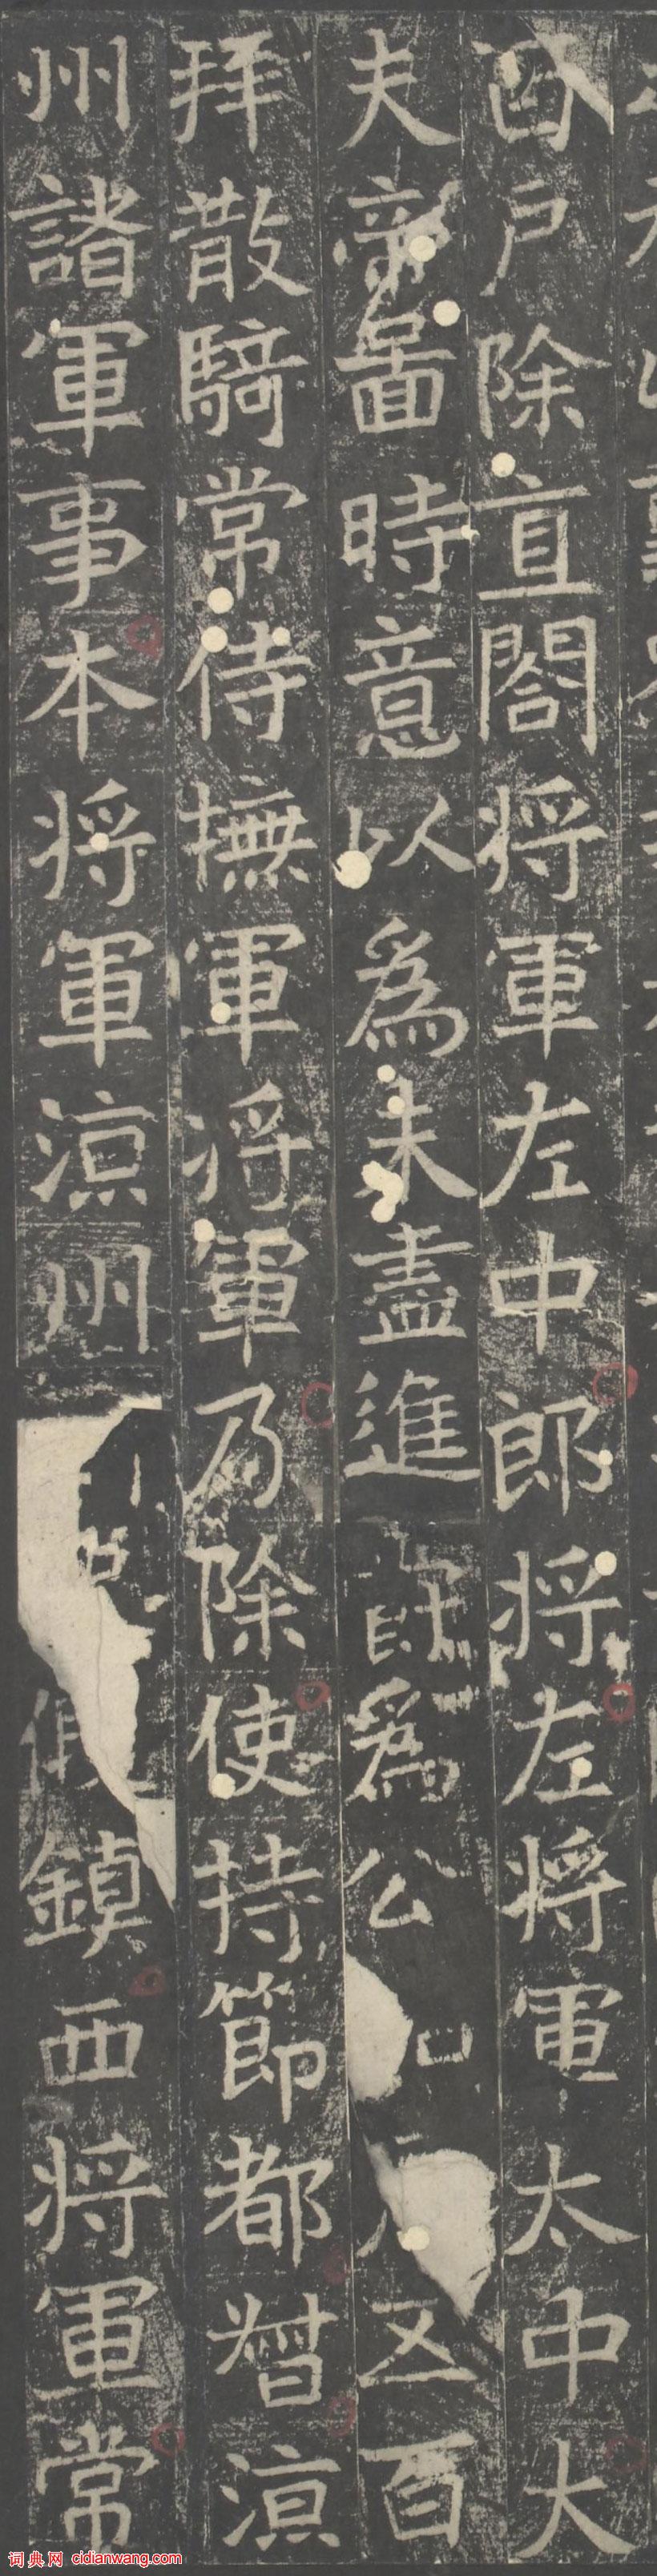 百戶除直閤將軍左中郎將左將軍太中大
夫帝啚時意以為未盡進為公五百
拜散騎常侍撫軍將軍乃除使持節都督涼
州諸軍事本將軍涼州假鎮西將軍常
词典网 cidianwang.com